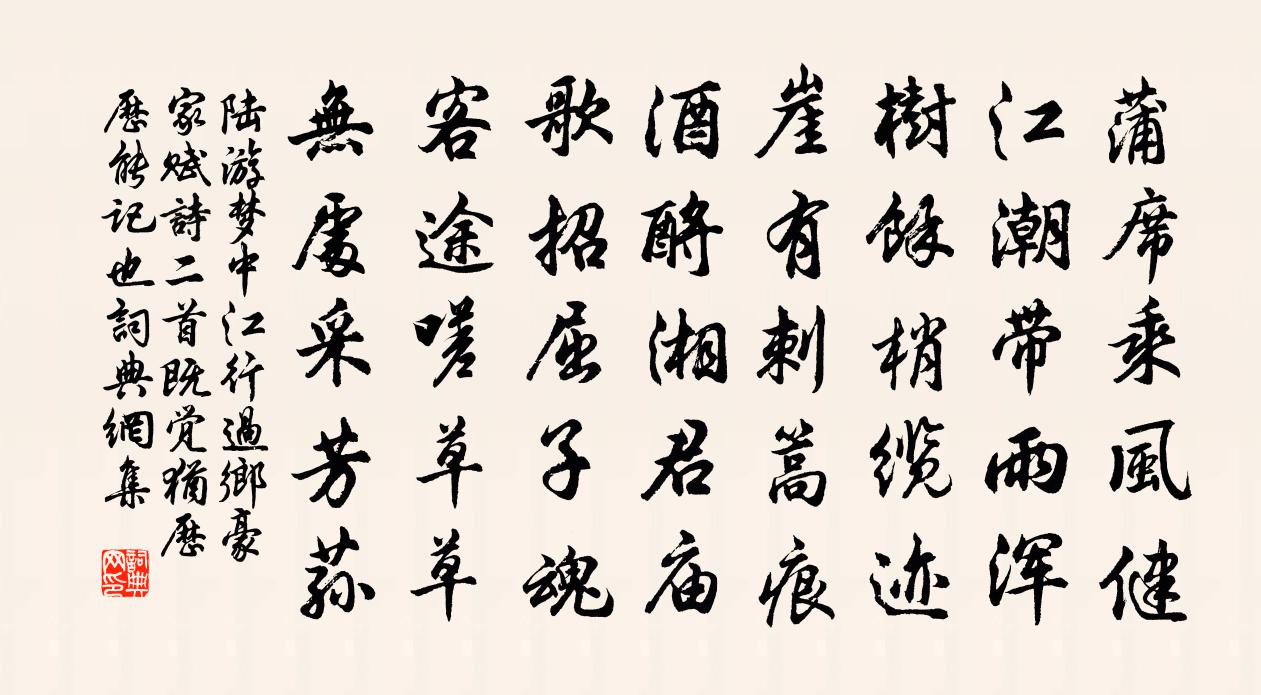 蒲席乘風健
江潮带雨浑
樹餘梢缆迹
崖有刺篙痕
酒酹湘君庙
歌招屈子魂
客途嗟草草
無處采芳荪
陆游梦中江行過鄉豪
家赋詩二首既觉猶歷
歷能记也詞典網集
詞典
网印